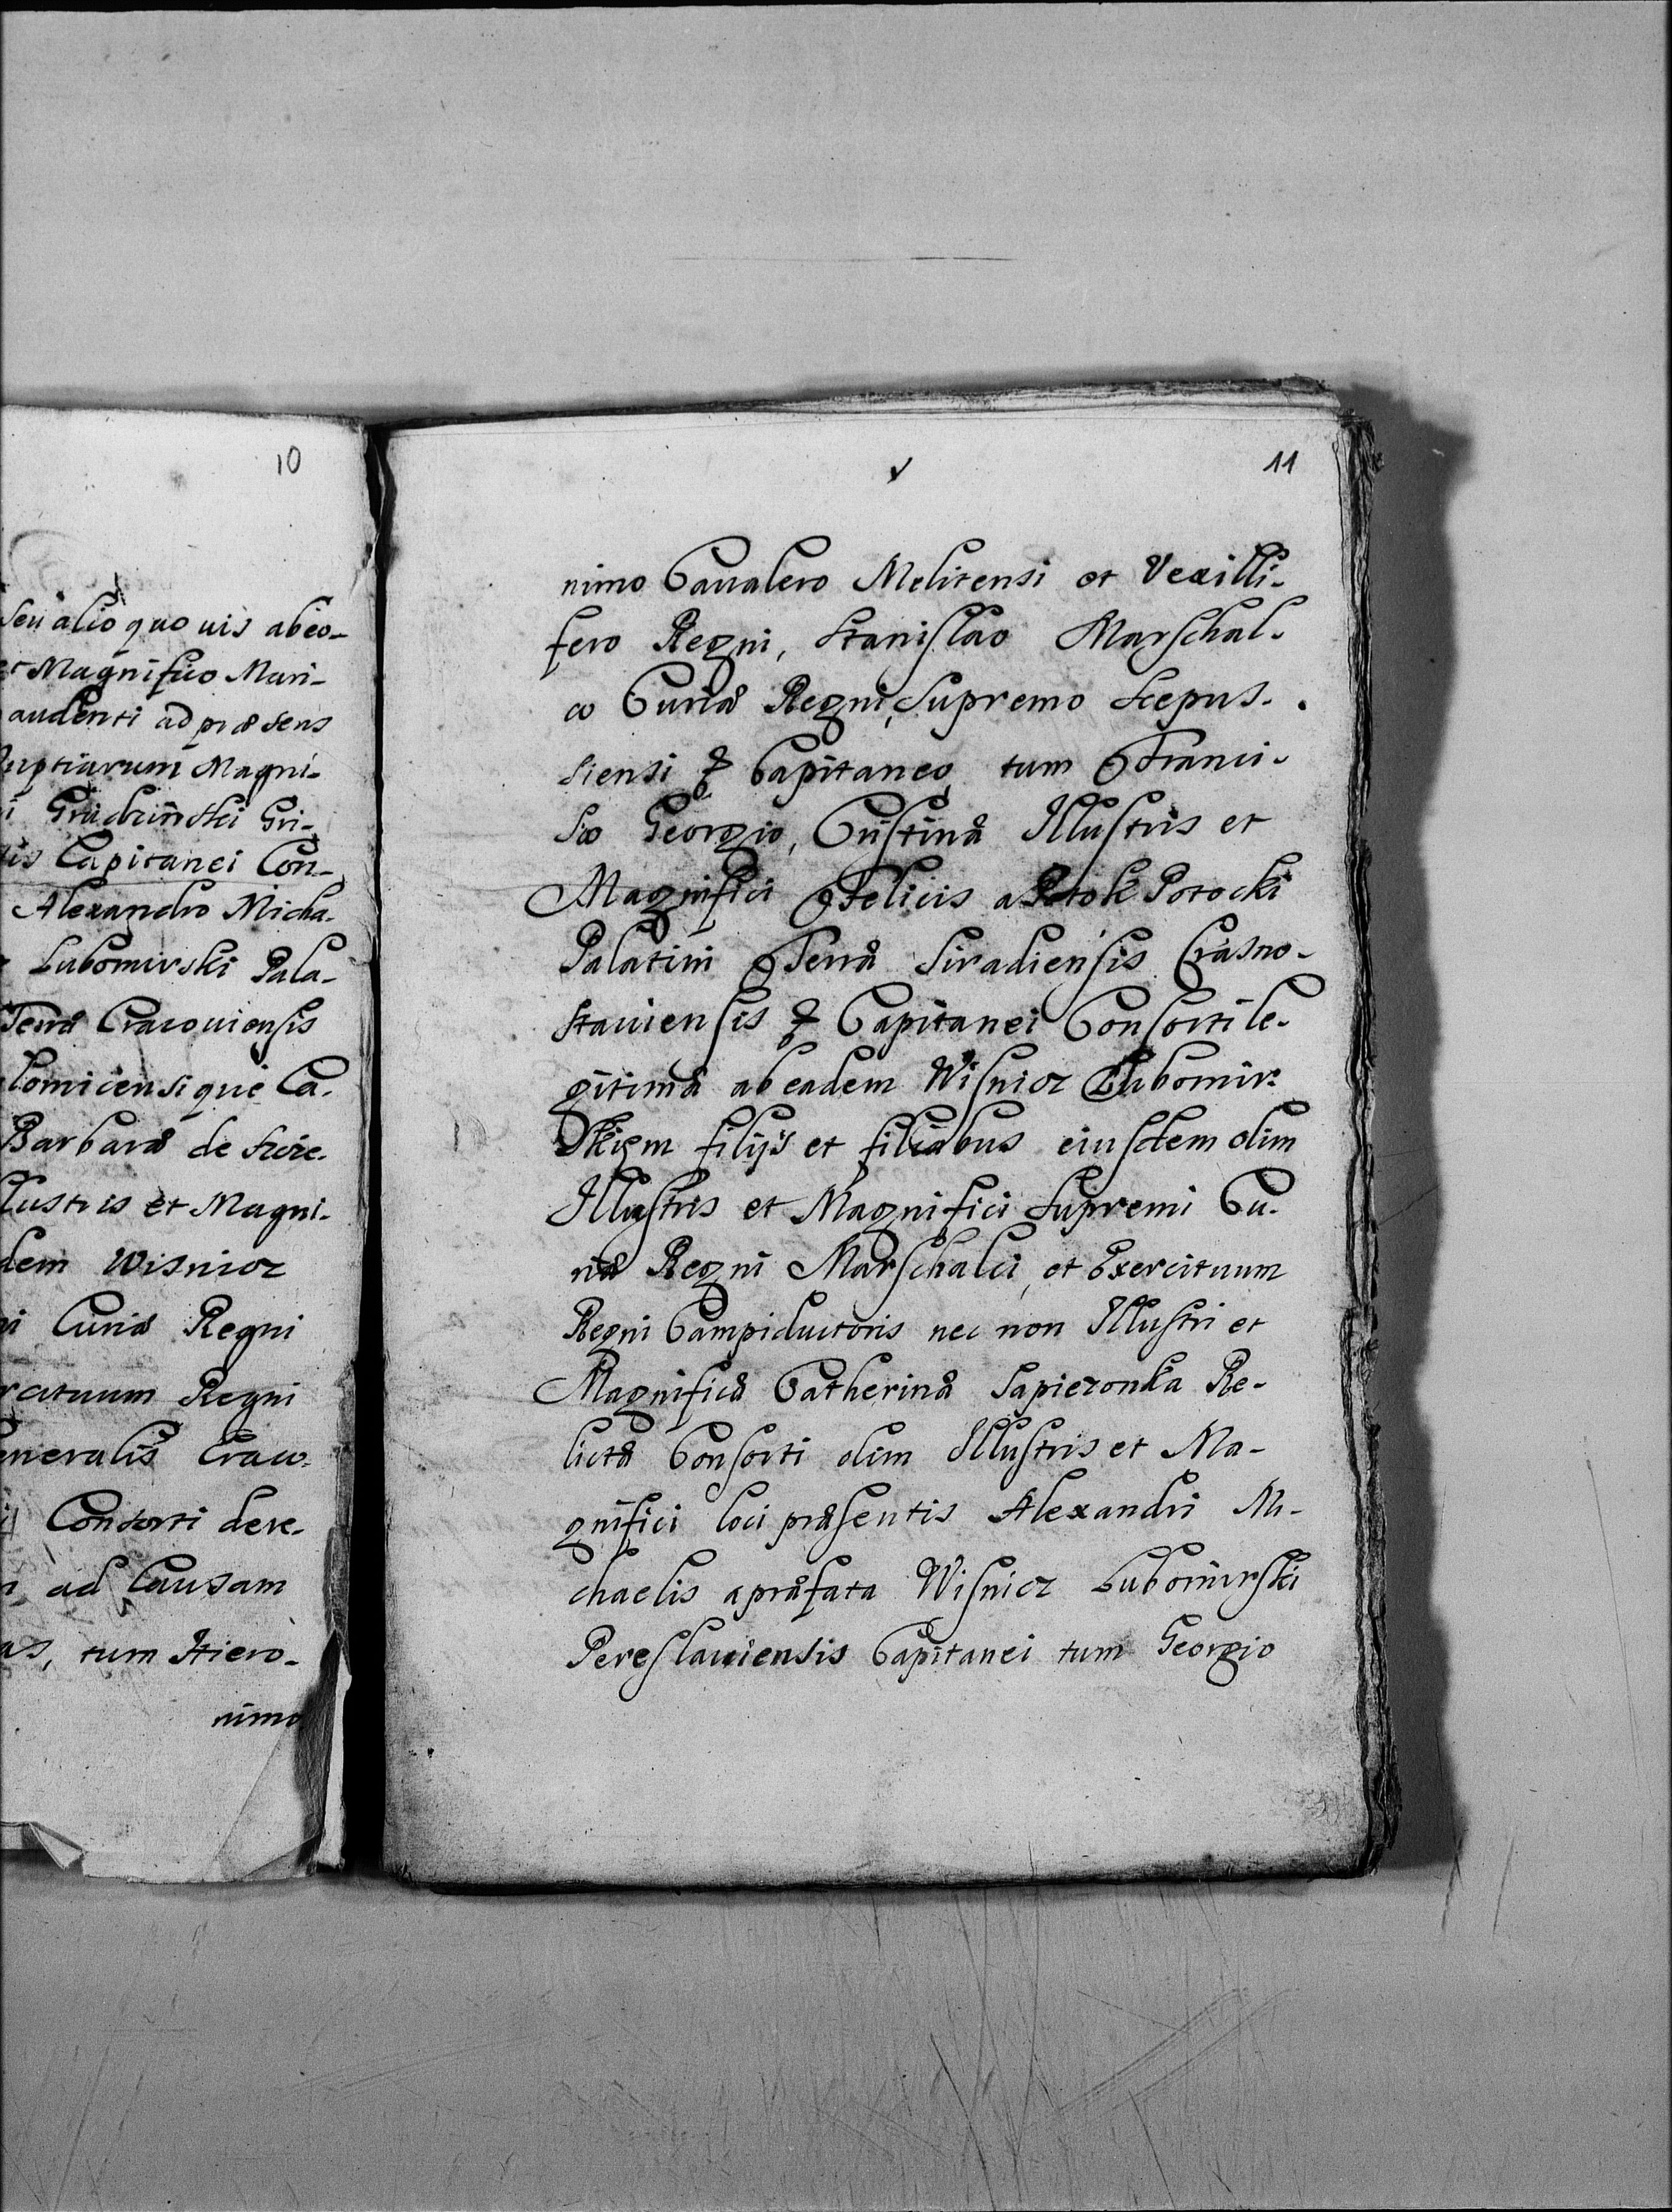 10
Seu alio quo uis abeo-
Magnifico Mari-
audenti ad præsens
nuptiarum Magni-
Grudzinski Gri-
Capitanei Con-
Alexandro Micha-
Lubomirski Pala-
Terræ Cracouiensis
lomicensi que Ca-
Barbaræ de
lustris et Magni-
dem Wisnicz
Curiæ Regni
Regni
eneralis Craco-
Consorti dere-
ad Causam
as, tum Hiero-
nimo
11
nimo Caualero Melitensi et Vexilli-
fero Regni, Stanislao Marschal-
co Curiæ Regni, Supremo Scepus-
siensi & Capitaneo tum Franci-
sco Georgio, Cristinæ Illustris et
Magnifici Felicis a Potok Potocki
Palatini Terræ Siradiensis Crasno-
stauiensis & Capitanei Consorti le-
gitimæ ab eadem Wisnicz Lubomir-
Skięm filijs et filiabus eiusdem olim
Illustris et Magnifici Supremi Cu-
riæ Regni Marschalci, et Exercituum
Regni Campiductoris nec non Illustri et
Magnificæ Catherinæ Sapiezonka Re-
lictæ Consorti olim Illustris et Ma-
gnifici loci præsentis Alexandri Mi-
chaelis a præfata Wisnicz Lubomirski
Pereslauiensis Capitanei tum Georgio